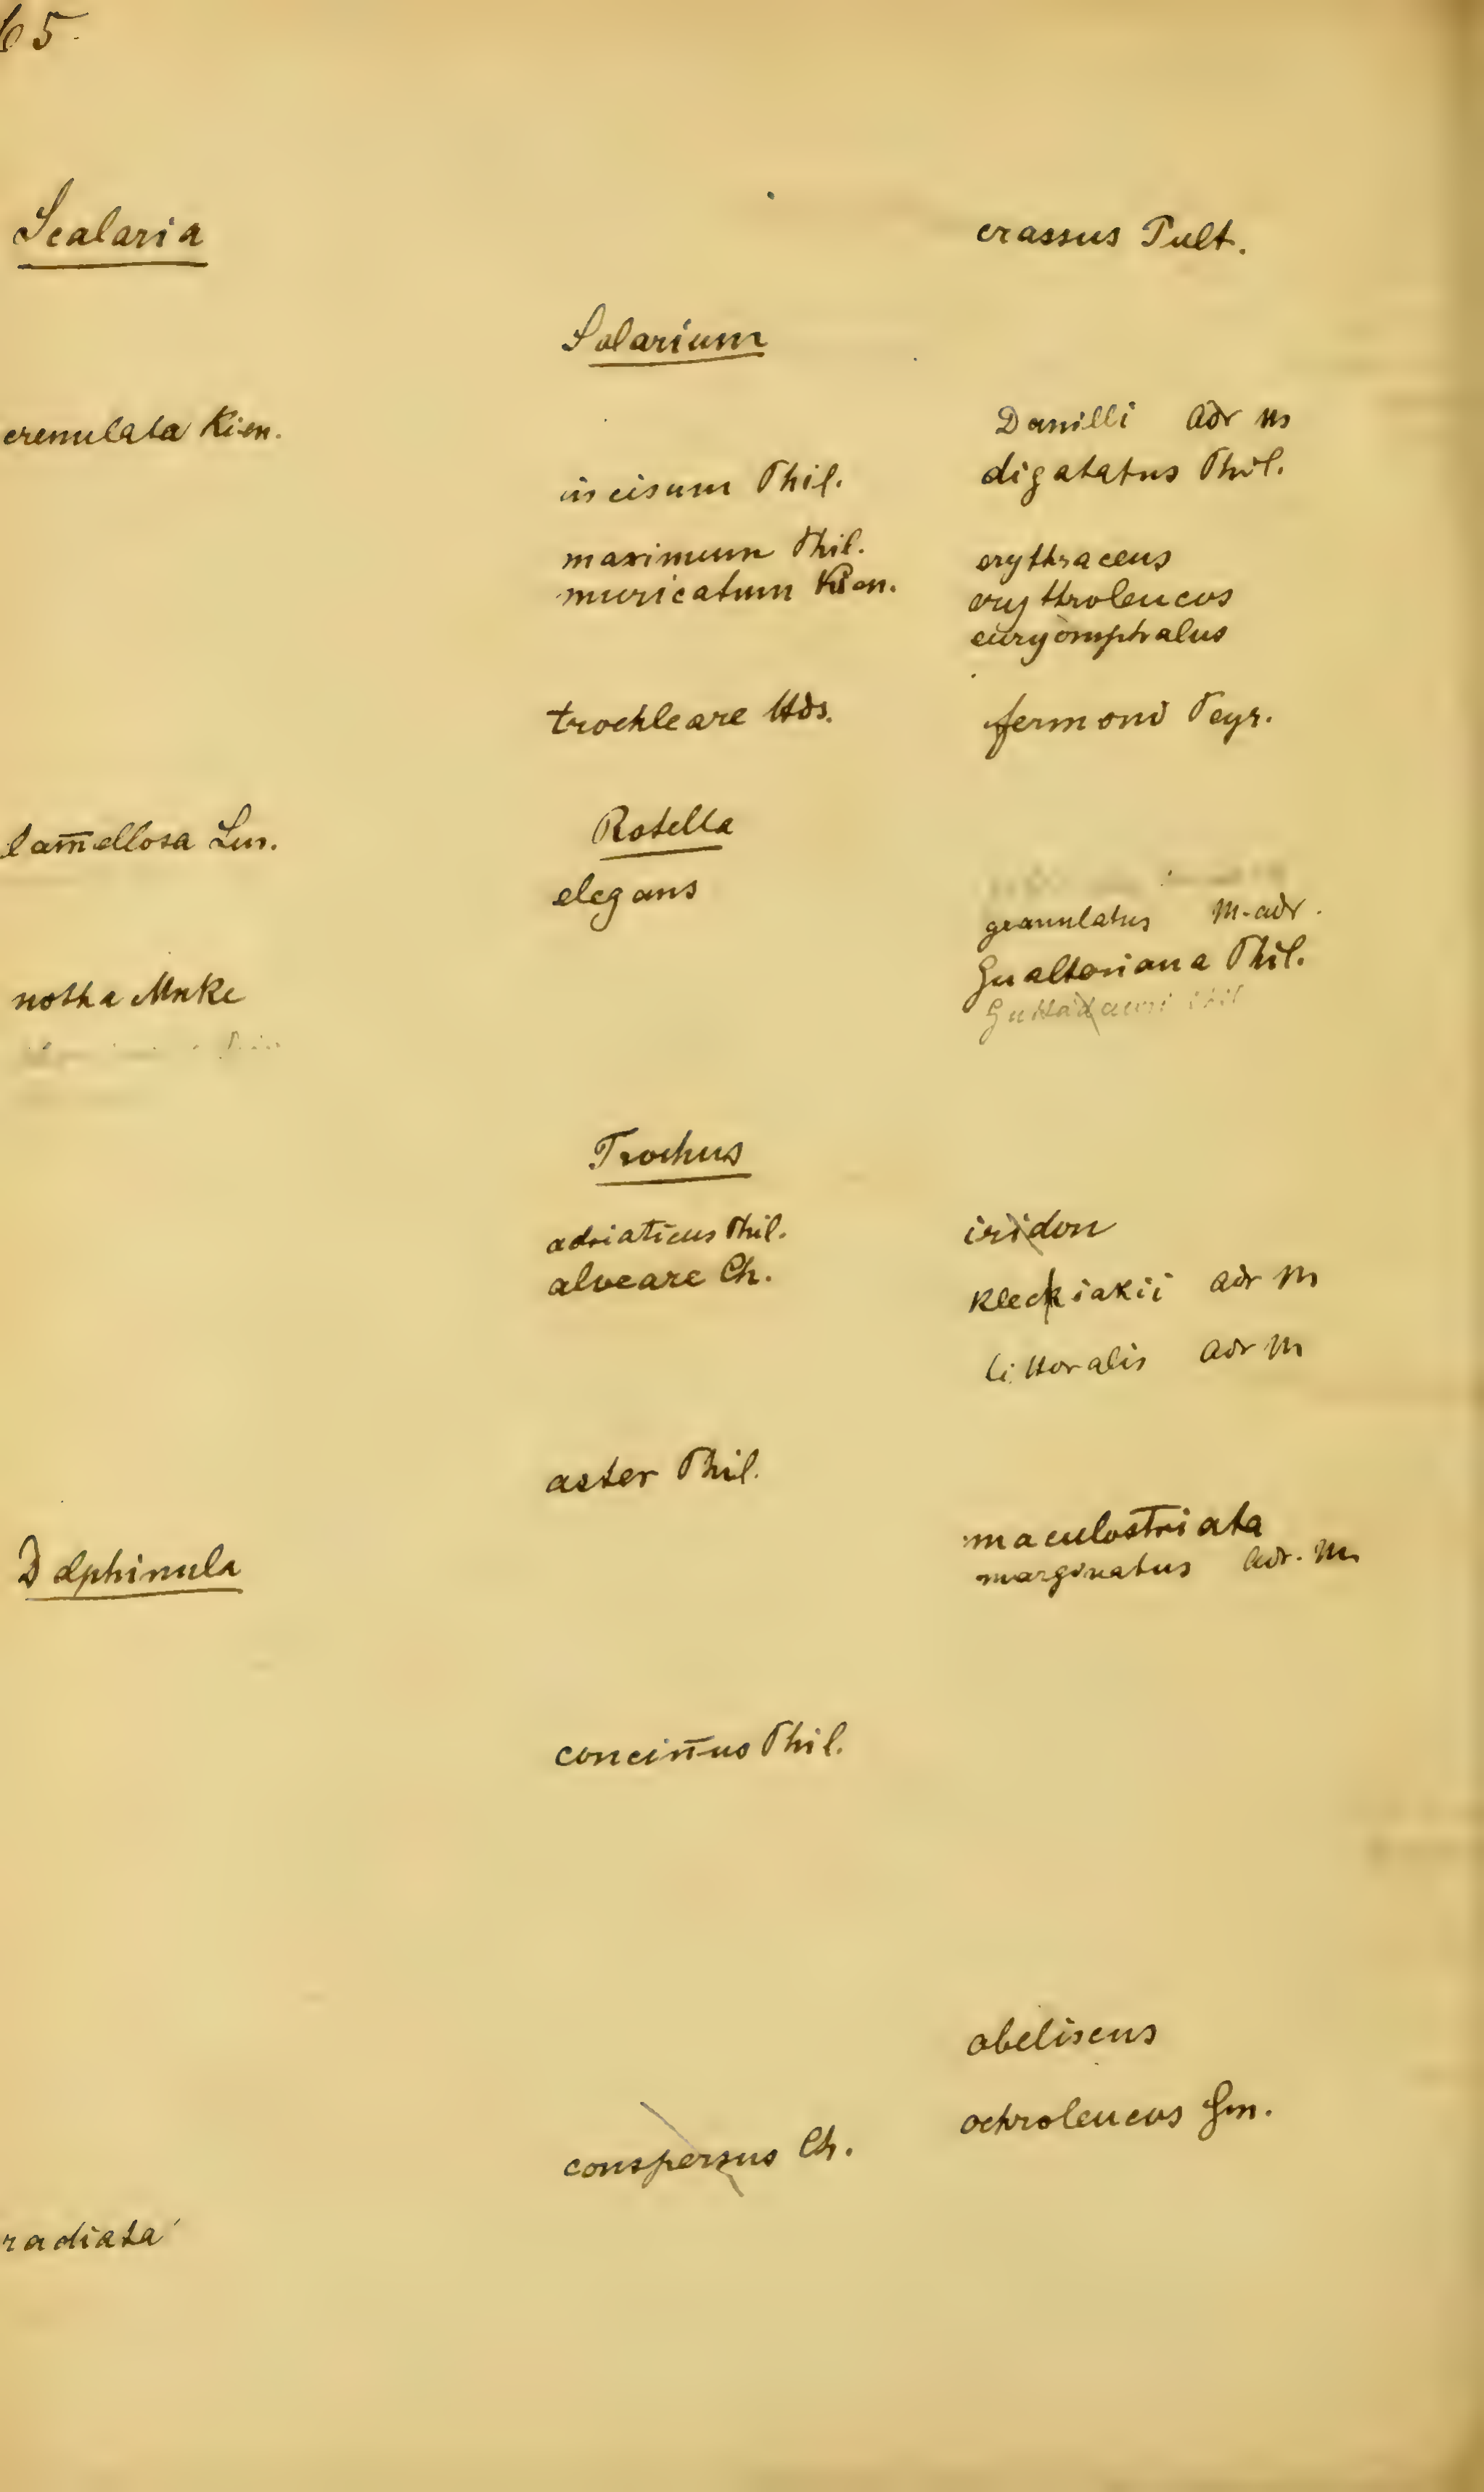 65.
Scalaria
crenulata Kien.
lamellosa Lm.
notha Mnke
Delphinula
radiata
Solarium
incisum Phil.
maximum Phil.
muricatum Kien.
trochleare Hds.
Rotella
elegans
Trochus
adriaticus Phil.
alveare Ch.
aster Phil.
concin̄us Phil.
conspersus Ch.
crassus Pult.
Danilli adr m
digatatus Phil.
erythraceus
erythroleucos
euryomphalus
fermond Peyr.
granulatus M-adr.
Gualteriana Phil.
Guttadauri Phil
iridon
Kleckiakii adr m
littoralis adr m
maculostriata
marginatus adr. m
obeliscus
ochroleucos Gm.